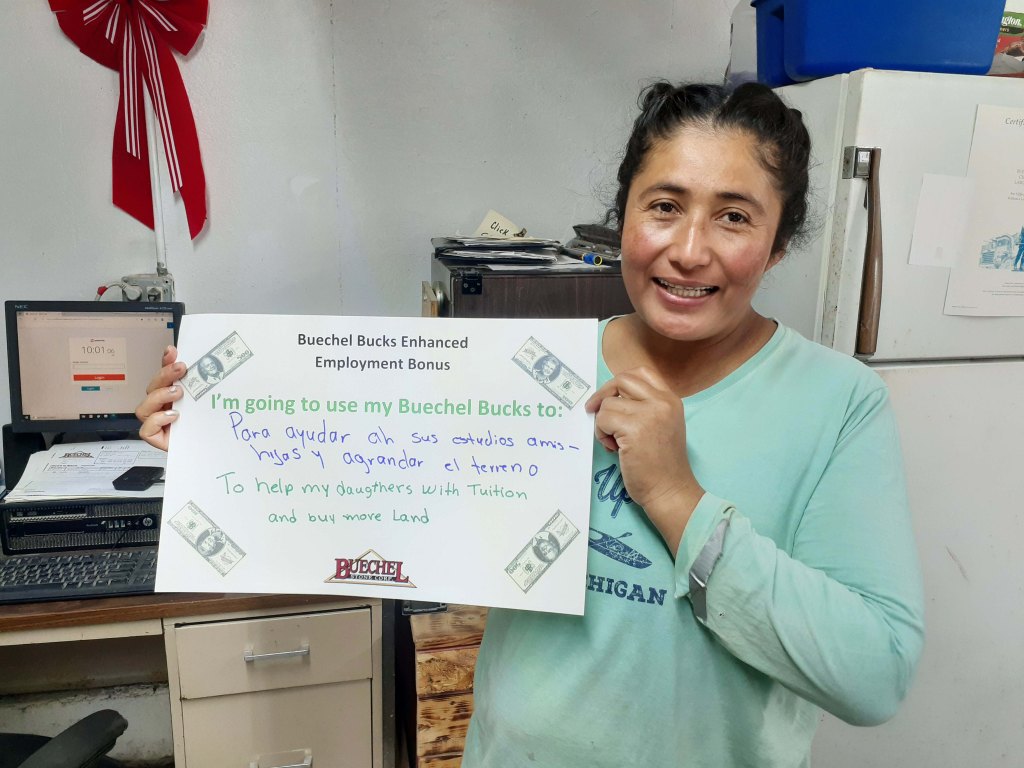 Buechel Bucks Enhanced
Employment Bonus
I'm going to use my Buechel Bucks to:
Para ayudar ah sus estudios amis-
hijas y agrandar el terreno
To help my daugthers with Tuition
and buy more Land
BUECHEL
STONE CORP.
NEC
10:01
Click
Certif
Up
HIGAN
hp